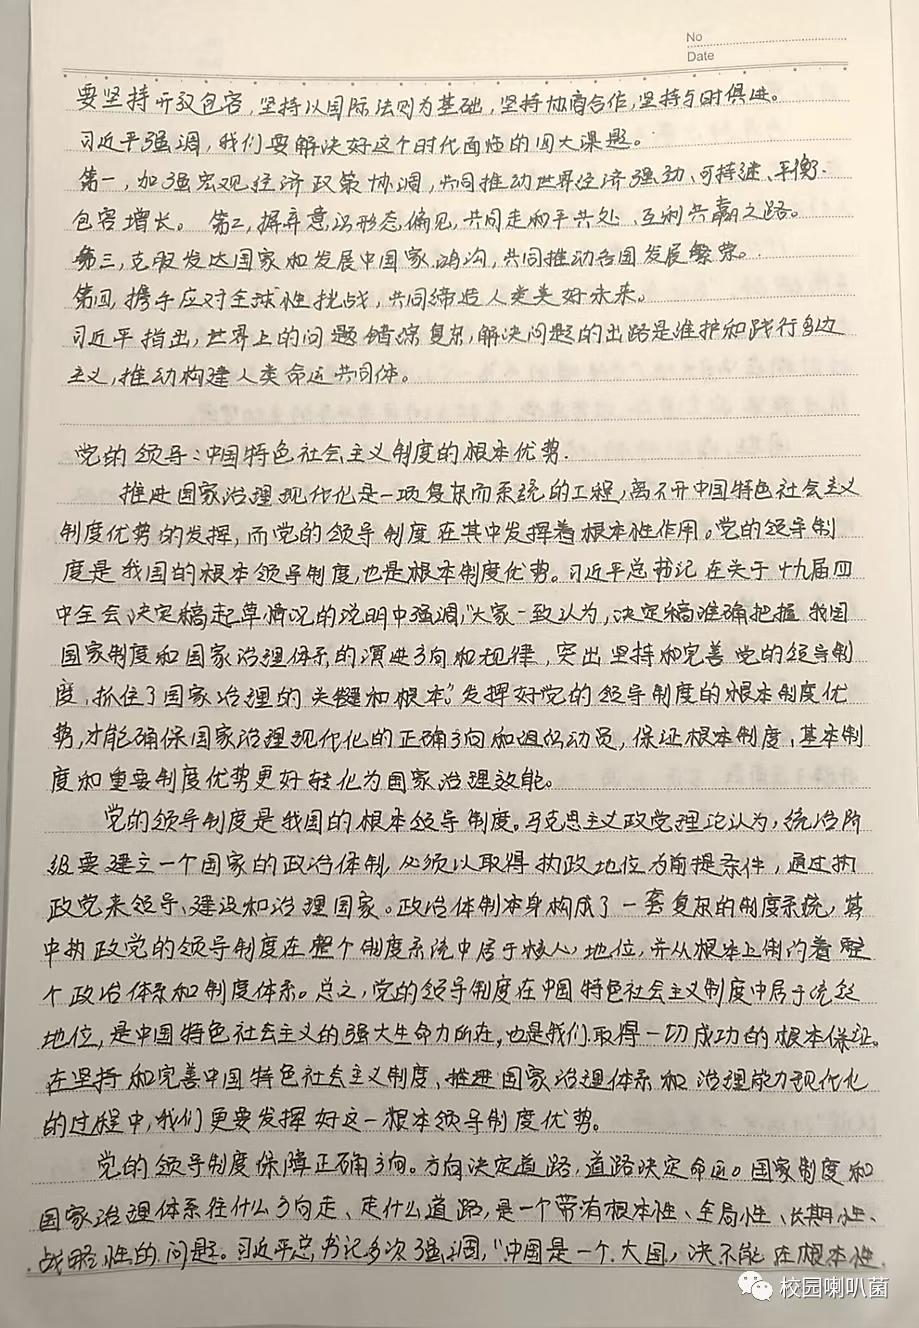 No
Date
要坚持开放包容,坚持以国际法则为基础,坚持协商合作,坚持与时俱进。
习近平强调,我们要解决好这个时代面临的四大课题。
第一,加强宏观经济政策协调,共同推动世界经济强劲、可持续、平衡.
包容增长。第二,摒弃意识形态偏见,共同走和平共处、互利共赢之路。
第三,克服发达国家和发展中国家鸿沟,共同推动各国发展繁荣。
第四,携手应对全球性挑战,共同缔造人类美好未来。
习近平指出,世界上的问题错综复杂,解决问题的出路是维护和践行多边
主义,推动构建人类命运共同体。
党的领导:中国特色社会主义制度的根本优势.
推进国家治理现代化是一项复杂而系统的工程,离不开中国特色社会主义
制度优势的发挥,而党的领导制度在其中发挥着根本性作用。党的领导制
度是我国的根本领导制度,也是根本制度优势。习近平总书记在关于十九届四
中全会决定稿起草情况的说明中强调,"大家一致认为,决定稿准确把握我国
国家制度和国家治理体系的演进方向和规律,突出坚持和完善党的领导制
度,抓住了国家治理的关键和根本"。发挥好党的领导制度的根本制度优
势,才能确保国家治理现代化的正确方向和组织动员,保证根本制度、基本制
度和重要制度优势更好转化为国家治理效能。
党的领导制度是我国的根本领导制度。马克思主义政党理论认为,统治阶
级要建立一个国家的政治体制,必须以取得执政地位为前提条件,通过执
政党来领导、建设和治理国家。政治体制本身构成了一套复杂的制度系统,其
中执政党的领导制度在整个制度系统中居于核心地位,并从根本上制约着整
个政治体系和制度体系。总之,党的领导制度在中国特色社会主义制度中居于统领
地位,是中国特色社会主义的强大生命力所在,也是我们取得一切成功的根本保证。
在坚持和完善中国特色社会主义制度、推进国家治理体系和治理能力现代化
的过程中,我们更要发挥好这一根本领导制度优势。
党的领导制度保障正确方向。方向决定道路,道路决定命运。国家制度和
国家治理体系往什么方向走、走什么道路,是一个带有根本性、全局性、长期性、
战略性的问题。习近平总书记多次强调,"中国是一个大国,决不能在根本性
校园喇叭菌